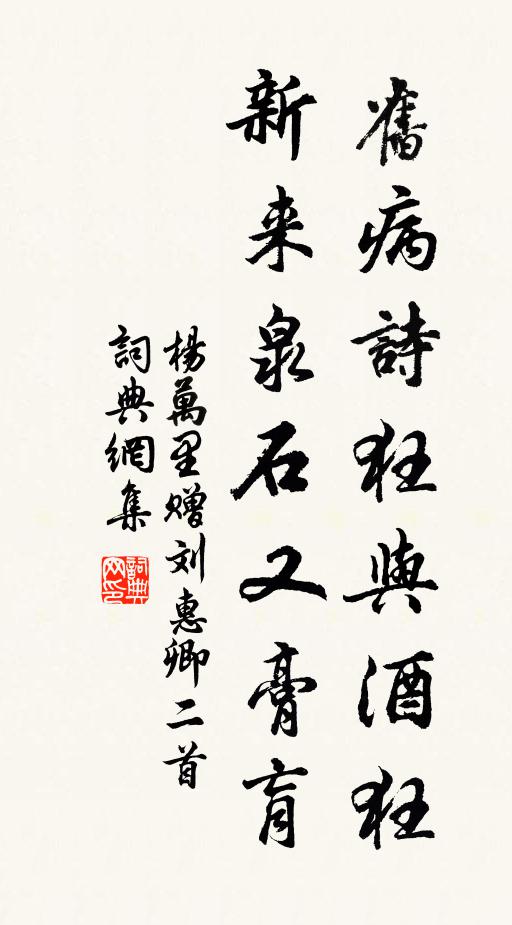 舊病詩狂與酒狂
新来泉石又膏肓
楊萬里赠刘惠卿二首
詞典網集
詞典网印